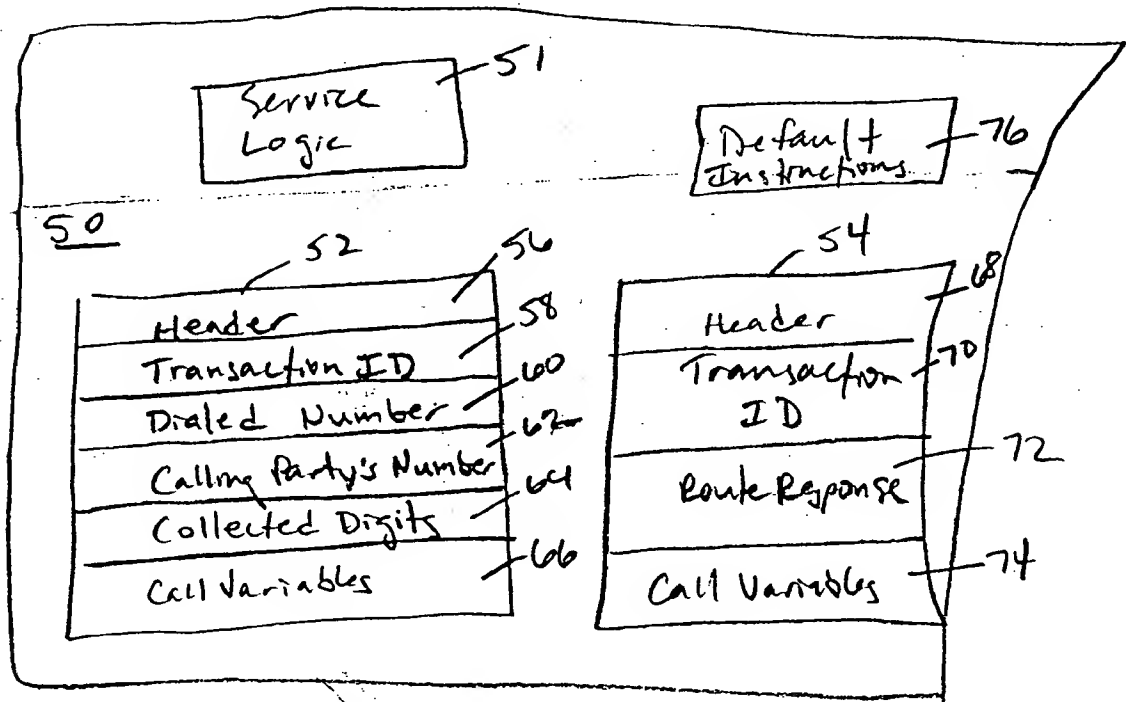 51
Service
Logic
76
Default
Instructions
50
52
56
Header
58
Transaction ID
60
Dialed Number
62
Calling Party's Number
64
Collected Digits
66
Call Variables
54
68
Header
70
Transaction
ID
72
Route Response
74
Call Variables